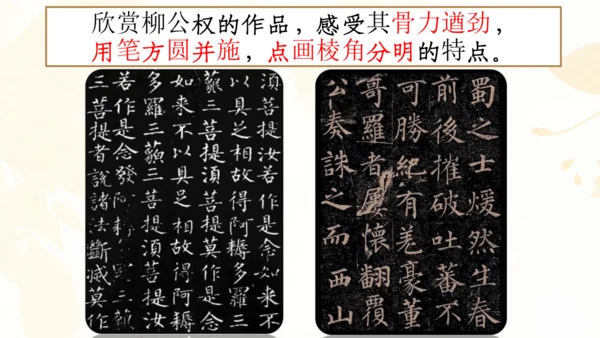 欣赏柳公权的作品，感受其骨力遒劲，
用笔方圆并施，点画棱角分明的特点。
須菩提汝若作是念如來不
以具足相故得阿耨多羅三
藐三菩提須菩提莫作是念
如來不以具足相故得阿耨
多羅三藐三菩提須菩提汝
若作是念發阿耨三藐
三菩提者說諸法斷滅莫作
蜀之士煖然生春
前後摧破吐蕃不
可勝紀有羌豪董
哥羅者屢懷翻覆
公奏誅之而西山